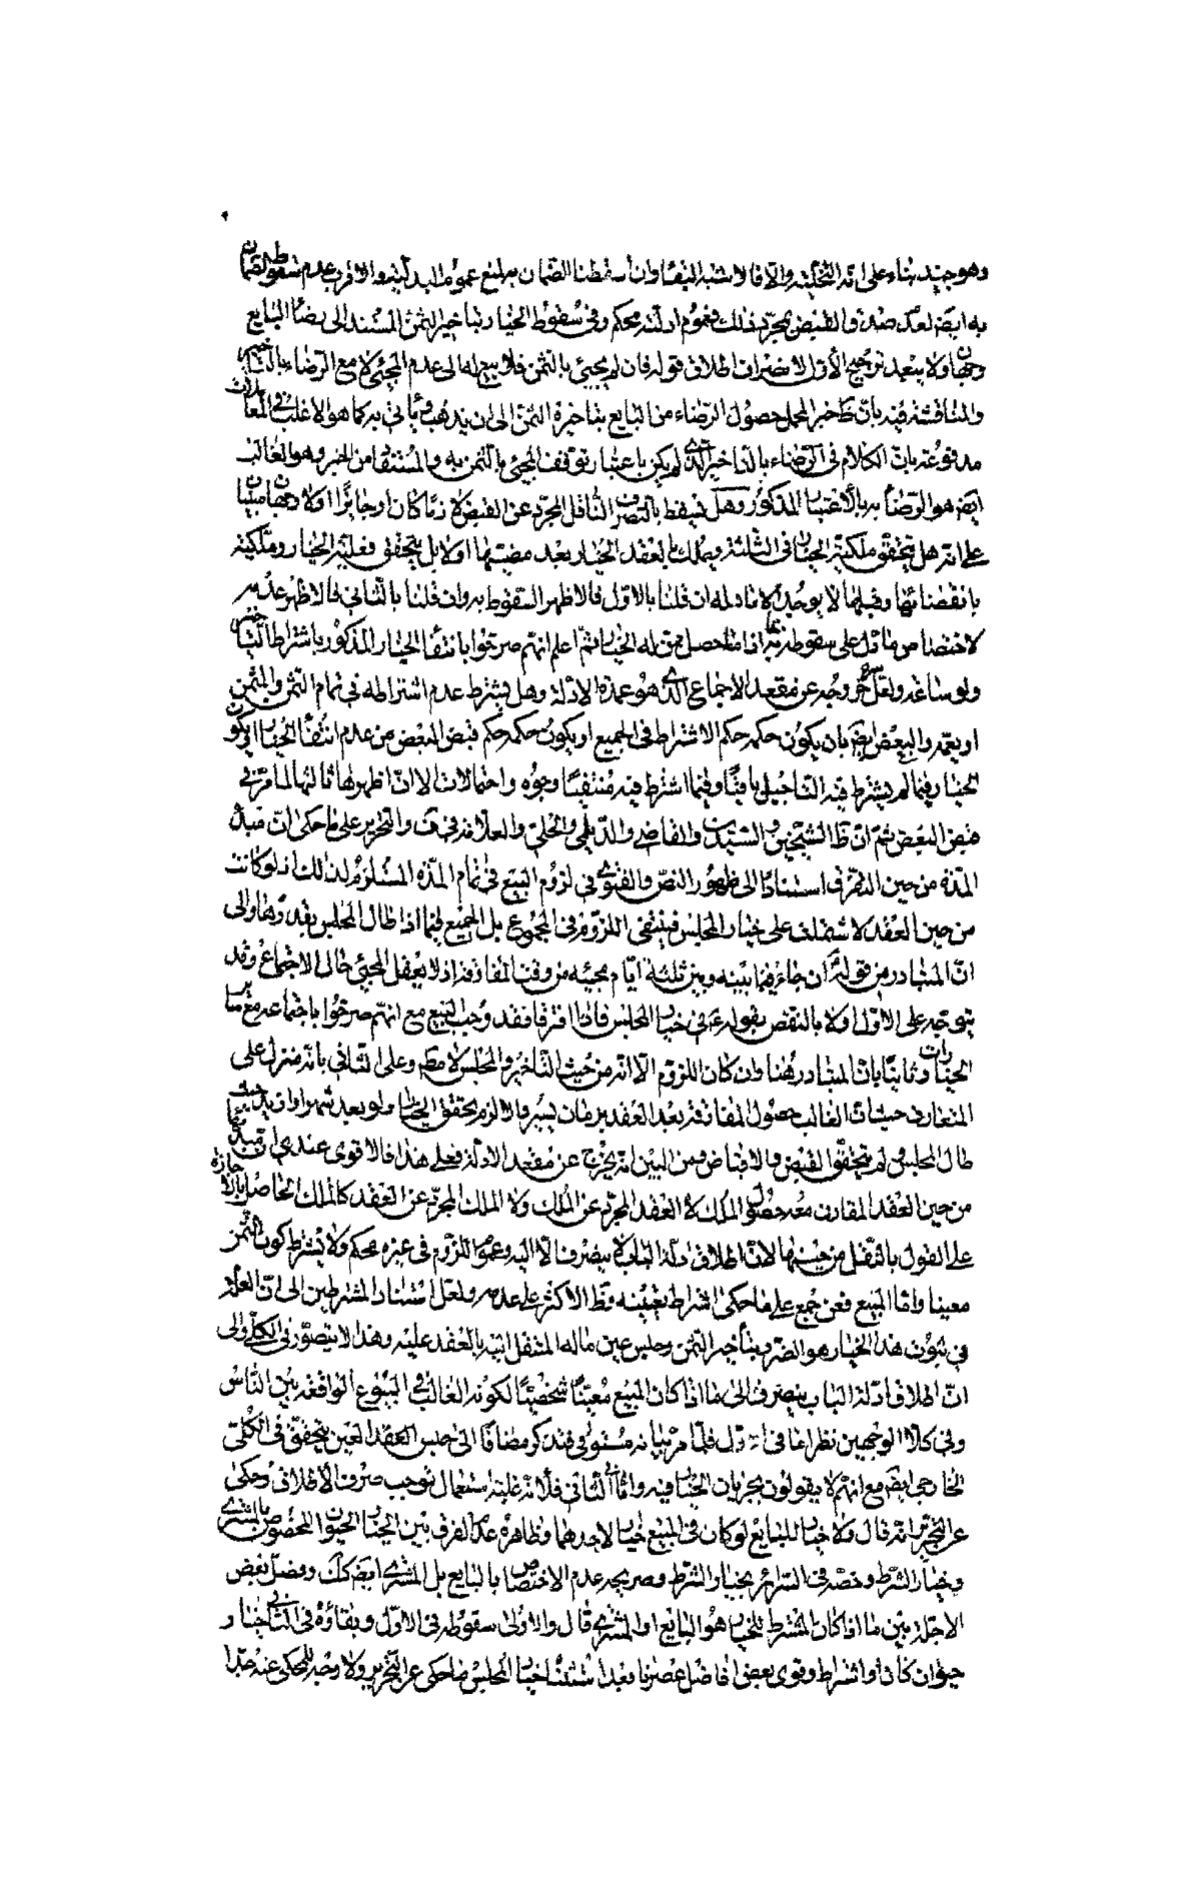 وهو جيد بناء على انه التخلية والا فالاشبه البقاء وان اسقطنا الضمان به لمنع عموم البدلية والاقرب عدم سقوط الضمان
به ايضا لعدم صدق القبض بمجرد ذلك فعموم ادلته محكم وفي سقوط الخيار بتاخير الثمن المستند الى رضا البايع
وجهان ولا يبعد ترجيح الاول لانصراف اطلاق قوله فان لم يجئ بالثمن فلا بيع له الى عدم المجئ لا مع الرضاء بالتاخير
والمناقشة فيه بان ظاهر المحل حصول الرضاء من البايع بتاخيره الثمن الى ان يذهب وياتي به كما هو الاغلب في المعاملات
مدفوعة بان الكلام في الرضاء بالتاخير الذي لم يكن باعتبار توقف المجئ بالثمن به والمستفاد من الخبر وهو الغالب
ايضا هو الرضا به بالاعتبار المذكور وهل يسقط بالتصرف الناقل المجرد عن القبض لازما كان او جايزا اولا وجهان مبنيان
على انه هل يتحقق ملكية الخيار في الثلثة ويملك بالعقد الخيار بعد مضيها اولا بل يتحقق فعلية الخيار وملكيته
بانقضائها وقبلها لا يوجد الا مادله ان قلنا بالاول فالاظهر السقوط به وان قلنا بالثاني فالاظهر عدمه
لاختصاص ما دل على سقوطه به اذا ما حصل ممن له الخيار ثم اعلم انهم صرحوا بانتفاء الخيار المذكور باشتراط التاخير
ولو ساعة ولعله خروجه عن مقعد الاجماع الذي هو عمدة الادلة وهل يشترط عدم اشتراطه في تمام الثمن والمثمن
او يعمه والبعض ايضا بان يكون حكمه حكم الاشتراط في الجميع او يكون حكمه حكم قبض البعض من عدم انتفاء الخيار او يكون
الخيار فيما لم يشترط فيه التاجيل باقيا وفيما اشترط فيه منتفيا وجوه واحتمالات الا ان اظهرها ثالثها لما مر في
قبض البعض ثم ان ظ الشيخين والسيدين والقاضي والديلمي والحلي والعلامة في ف والتحرير على ما حكى ان مبدء
المدة من حين التفرق استنادا الى ظهور النص والفتوى في لزوم البيع في تمام المدة المستلزم لذلك اذ لو كانت
من حين العقد لاشتملت على خيار المجلس فينتفي اللزوم في المجموع بل الجميع فيما اذا طال المجلس بقدرها والى
ان المتبادر من قوله ان جاء فيما بينه وبين ثلثة ايام مجيئه من وقت المفارقة اذ لا يعقل المجئ حال الاجتماع وقد
يتوجه على الاول اولا بالنقض بقوله ع في خيار المجلس فاذا افترقا فقد وجب البيع مع انهم صرحوا باجتماعه مع ساير
الخيارات وثانيا بان المتبادر هنا وان كان اللزوم الا انه من حيث التاخير والمجلس لا مطلقا وعلى الثاني بانه منزل على
المتعارف حيث ان الغالب حصول المفارقة بعد العقد بزمان يسير والا لزم تحقق الخيار ولو بعد شهر او ازيد حيث
طال المجلس ولم يتحقق القبض والاقباض ومن البين انه يخرج عن مقعد الادلة فعلى هذا فالاقوى عندي ان مبدئها
من حين العقد المقارن معه حصول الملك لا العقد المجرد عن الملك ولا الملك المجرد عن العقد كالملك الحاصل بالاجازة
على القول بالنقل من حينها لان اطلاق ادلة الباب لا ينصرف الا اليه وعموم اللزوم في غيره محكم ولا يشترط كون الثمن
معينا واما المبيع فعن جمع على ما حكى اشتراط تعيينه وظ الاكثر على عدمه ولعل استناد المشترطين الى ان العلة
في ثبوت هذا الخيار هو الضرر بتاخير الثمن وحبس عين ماله المنتقل اليه بالعقد عليه وهذا لا يتصور في الكلي والى
ان اطلاق ادلة الباب ينصرف الى ما اذا كان المبيع معينا شخصيا لكونه الغالب في البيوع الواقعة بين الناس
وفي كلا الوجهين نظر اما في الاول فلما مر بيانه مستوفى فتذكر مضافا الى حبس العقد العين يتحقق في الكلي
الخارجي ايضا مع انهم لا يقولون بجريان الخيار فيه واما في الثاني فلانه غلبة استعمال توجب صرف الاطلاق وحكى
عن التحرير انه قال ولا خيار للبايع لو كان في المبيع خيار لاحدهما وظاهره عدم الفرق بين الخيار الحيوان المخصوص بالمشتري
وخيار الشرط وخصه في السرائر بخيار الشرط وصريحه عدم الاختصاص بالبايع بل المشتري ايضا كك وفصل بعض
الاجلة بين ما اذا كان المشترط للخيار هو البايع او المشتري قال والاولى سقوطه في الاول وبقاؤه في الثاني خيار
حيوان كان او اشتراط وقوى بعض افاضل عصرنا بعد استثناء خيار المجلس ما حكى عن التحرير ولا وجه للمحكى عنه جدا